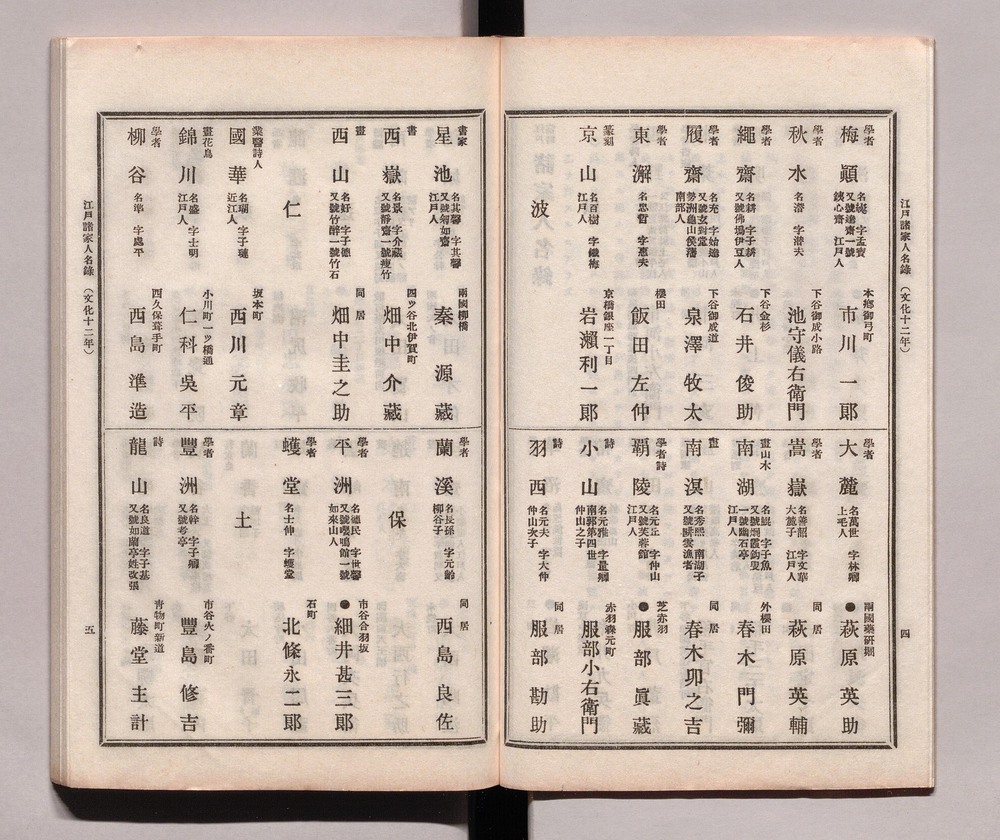 江戸諸家人名錄 (文化十二年)
四
學者
梅顚
江戸人
本鄕御弓町
市川一郞
學者
秋水
名潛 字潛夫
下谷御成小路
池守儀右衞門
學者
繩齋
名耕 字子耕
又號佛塢伊豆人
下谷金杉
石井俊助
學者
履齋
勢洲龜山侯藩
南部人
下谷御成道
泉澤牧太
學者
東澥
名忠哲 字惠夫
櫻田
飯田左仲
篆刻
京山
名百樹 字鐵梅
江戸人
京橋銀座一丁目
岩瀨利一郞
波
學者
大麓
名萬世 字林鄕
上毛人
兩國藥研堀
●萩原英助
學者
嵩嶽
名善韶 字文華
大麓子 江戸人
同居
萩原英輔
畫山水
南湖
名鯤 字子魚
又號烟霞釣叟
一號幽石亭
江戸人
外櫻田
春木門彌
畫
南溟
名秀熙 南湖子
又號耕雲漁者
同居
春木卯之吉
學者詩
覇陵
名元正 字仲山
又號芙蓉館
江戸人
芝赤羽
●服部眞藏
詩
小山
名元雅 字量鄕
南郭第四世
仲山之子
赤羽森元町
服部小右衞門
詩
羽西
名元夫 字大仲
仲山次子
同居
服部勘助
書家
星池
名其馨 字其馨
又號匊如齋
江戸人
兩國柳橋
秦源藏
書
西嶽
名景 字介藏
又號靜齋一號瘦竹
四ツ谷北伊賀町
畑中介藏
畫
西山
名好 字子德
又號竹醉一號竹石
同居
畑中圭之助
仁
業醫詩人
國華
名瑚 字子璉
近江人
坂本町
西川元章
畫花鳥
錦川
名盛 字士明
江戸人
小川町一ツ橋通
仁科吳平
學者
柳谷
名準 字處平
四久保葺手町
西島準造
學者
蘭溪
名長孫 字元齡
柳谷子
同居
西島良佐
保
學者
平洲
名德民 字世馨
又號嚶鳴館一號
如來山人
市谷合羽坂
●細井甚三郞
學者
蠖堂
名士伸 字蠖堂
石町
北條永二郞
土
學者
豐洲
名幹 字子卿
又號考亭
市谷火ノ番町
豐島修吉
詩
龍山
名良道 字子基
又號如蘭亭姓改張
靑物町新道
藤堂主計
江戸諸家人名錄 (文化十二年)
五